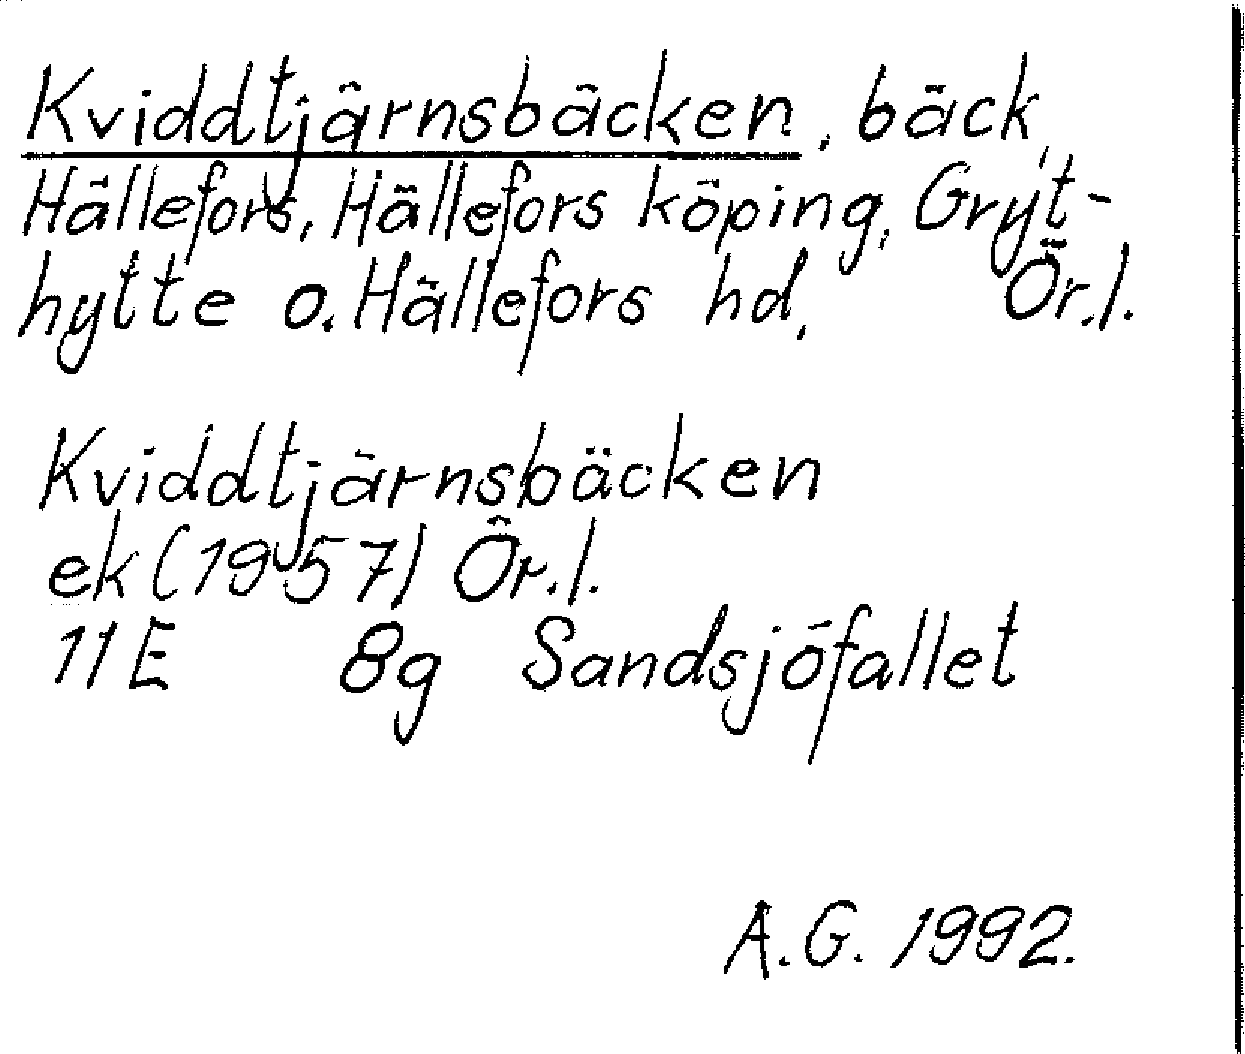 Kviddtjärnsbäcken, bäck,
Hällefors, Hällefors köping, Gryt-
hytte o. Hällefors hd, Ör.l.
Kviddtjärnsbäcken
ek (1957) Ör.l.
11E 8g Sandsjöfallet
A.G. 1992.